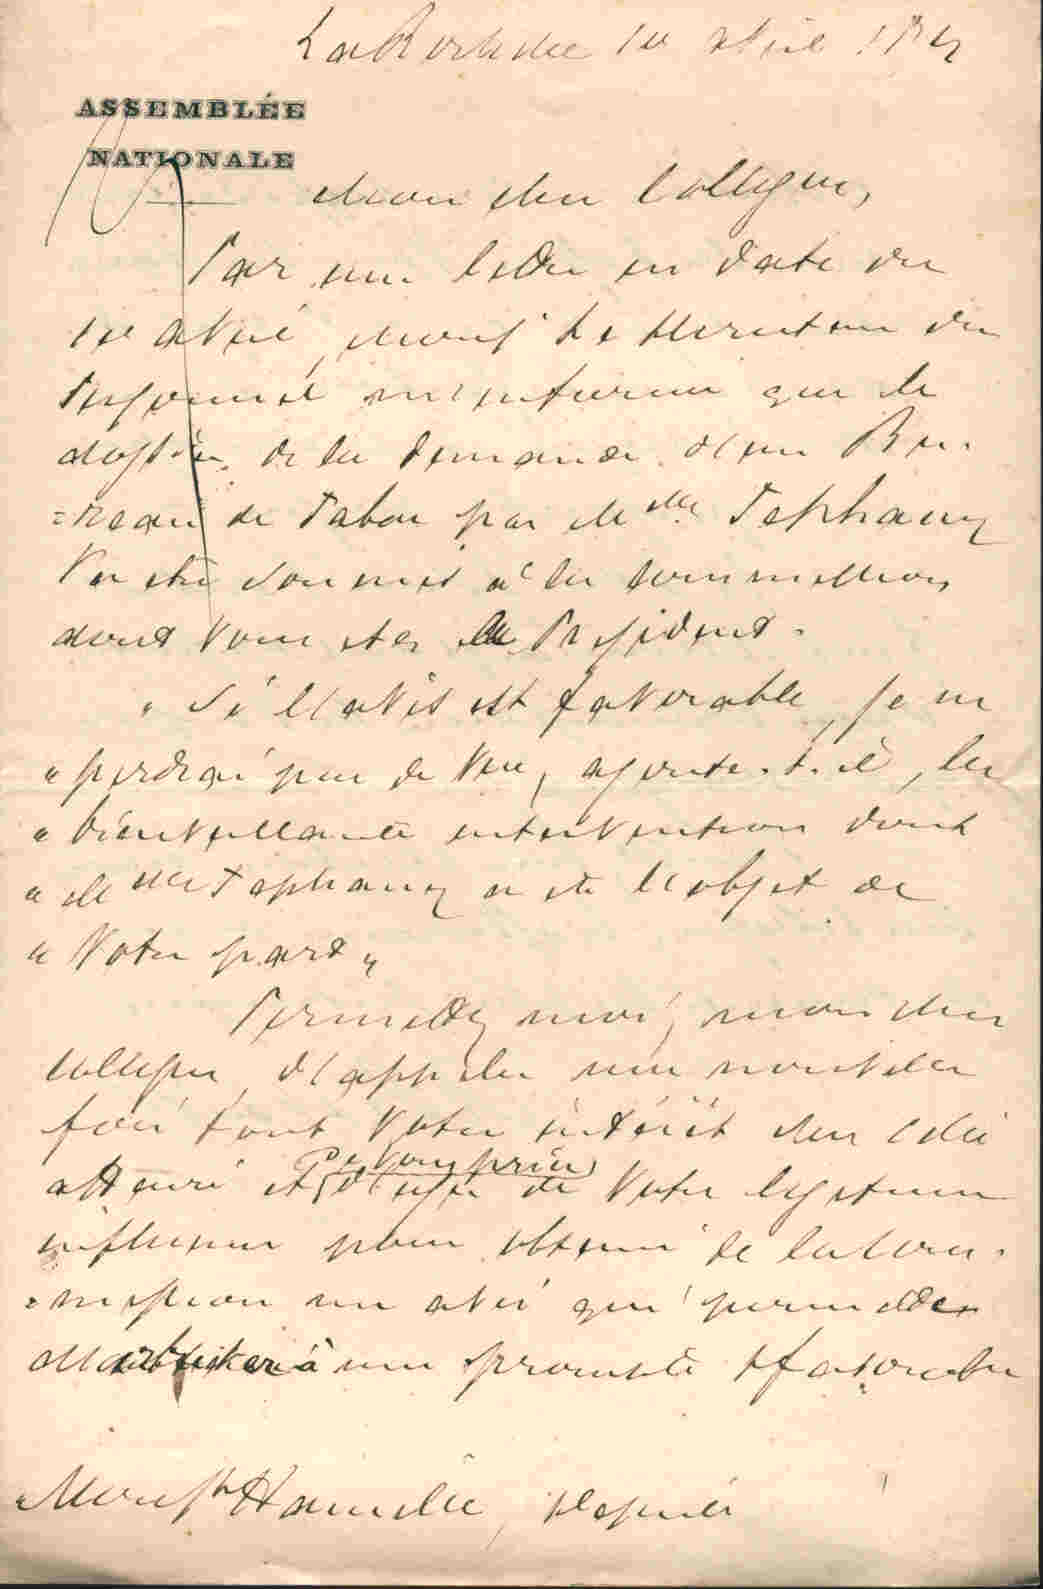 La Rochelle 10 avril 187
ASSEMBLÉE
NATIONALE
Mon cher Collegue,
Par une lettre en date du
1er avril, Mons. le Directeur du
Personnel m'informe que le
dossier de la demande d'un Bu-
=reau de Tabac par Melle Tephany
Va être soumis à la Commission
dont Vous etes le President.
" Si l'avis est favorable, je ne
" perdrai pas de Vue, ajoute-t-il, la
" bienveillante intervention dont
" Melle Tephany a été l'objet de
" Votre part "
Permettez moi, mon cher
Collegue, d'appeler une nouvelle
fois tout Votre intérêt sur cette
affaire et de Vous prier d'user de Votre legitime
influence pour obtenir de la Com-
=mission un avis qui permette
d'arriver à une prompte et favorable
Monsr Hamille, Deputé